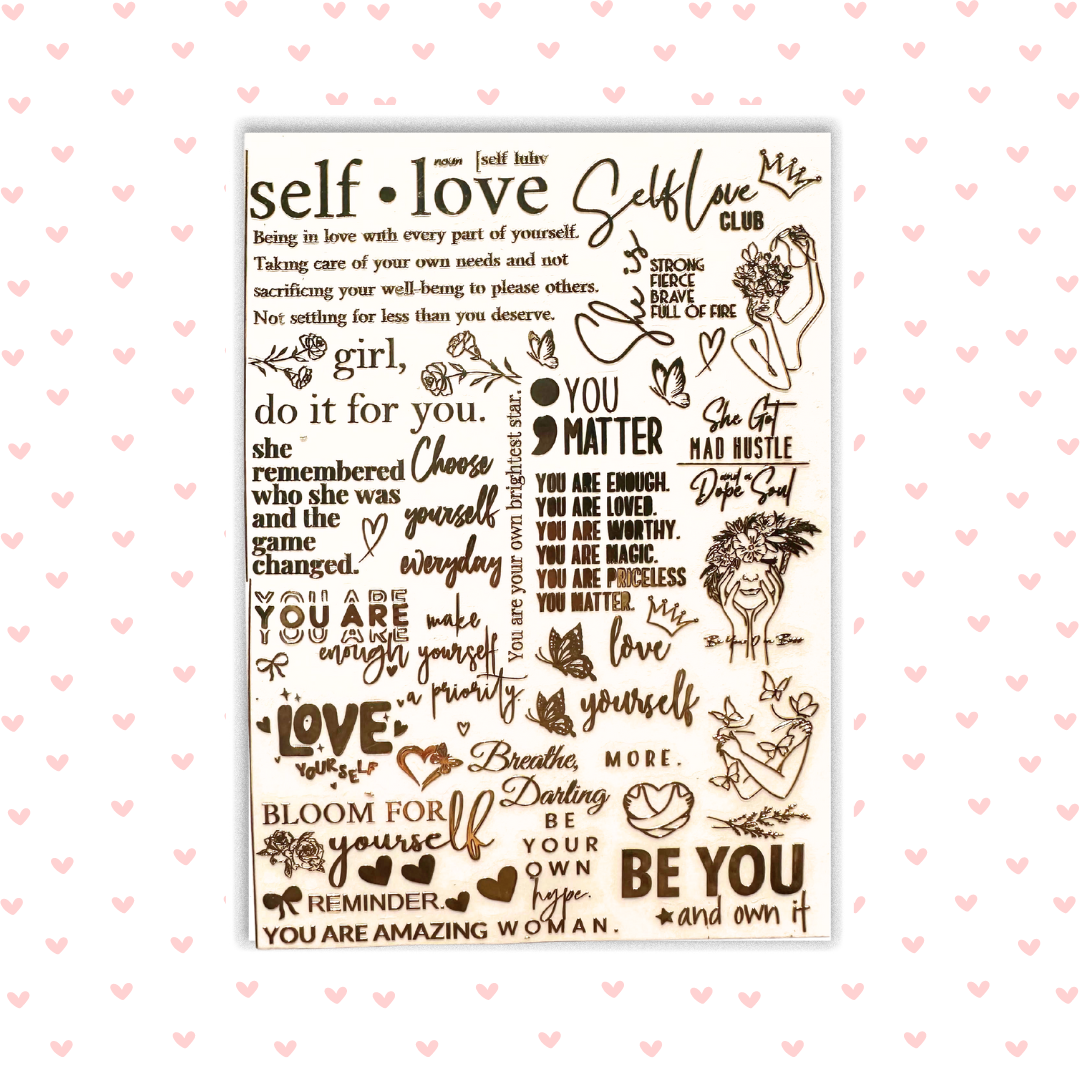 noun [self luhv
self • love
Being in love with every part of yourself.
Taking care of your own needs and not
sacrificing your well-being to please others.
Not settling for less than you deserve.
Self Love
CLUB
She is
STRONG
FIERCE
BRAVE
FULL OF FIRE
girl,
do it for you.
she
remembered
who she was
and the
game
changed.
Choose
yourself
everyday
You are your own brightest star.
YOU
MATTER
YOU ARE ENOUGH.
YOU ARE LOVED.
YOU ARE WORTHY.
YOU ARE MAGIC.
YOU ARE PRICELESS
YOU MATTER.
She Got
MAD HUSTLE
and a
Dope Soul
Be Your Own Boss
YOU ARE
YOU ARE
YOU ARE
enough
make
yourself
a priority.
love
yourself
MORE.
LOVE
YOURSELF
Breathe,
Darling
BLOOM FOR
yourself
BE
YOUR
OWN
hype.
BE YOU
and own it
REMINDER.
YOU ARE AMAZING WOMAN.